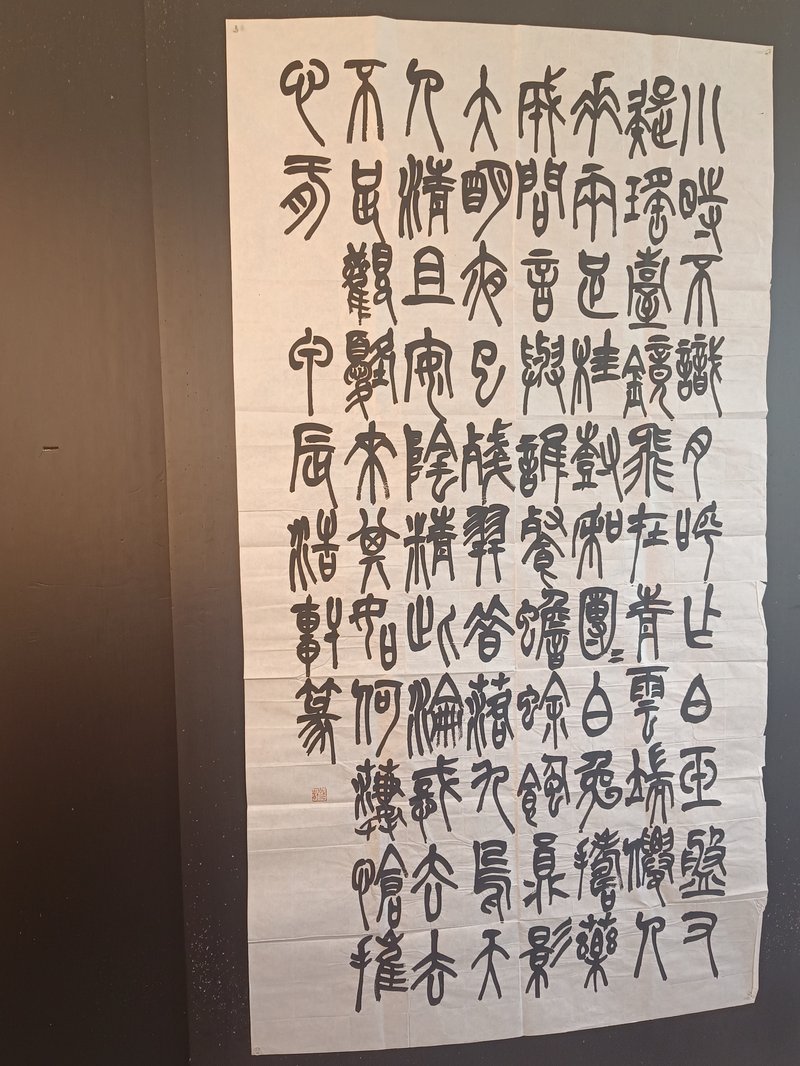 小時不識月呼乍白玉盤又
疑瑤臺鏡飛在青雲端僊人
垂兩足桂樹和團〻白兔擣藥
成問言與誰餐蟾蜍蝕員影
大明夜已殘羿昔落九烏天
人清且安陰精此淪惑去去
不足觀憂來其如何凄愴摧
心肝 甲辰浩軒篆